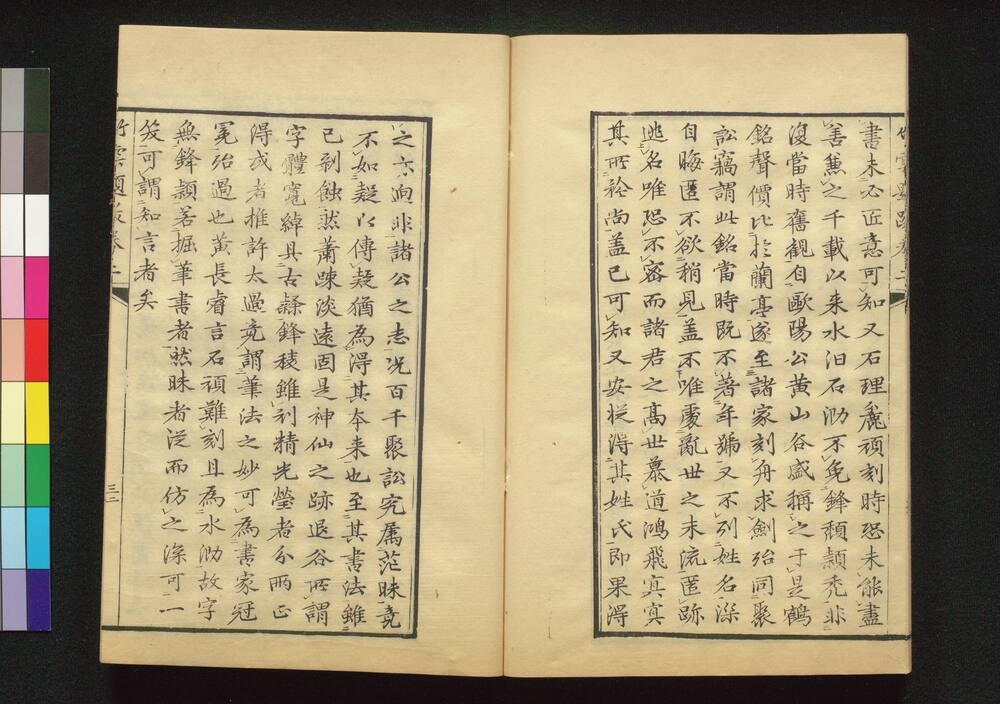 書未必匠意可知又石理麁頑刻時恐未能盡
善兼之千載以来水汨石泐不免鋒頽穎禿非
復當時舊觀自歐陽公黄山谷盛稱之于是鶴
銘聲價比於蘭亭遂至諸家刻舟求劍殆同聚
訟竊謂此銘當時既不著年號又不列姓名深
自晦匿不欲稍見盖不唯處亂世之末流匿跡
逃名唯恐不密而諸君之髙世慕道鴻飛冥冥
其所矜尚盖已可知又安従得其姓氏即果得
之亦迥非諸公之志况百千聚訟究屬茫昧竟
不如疑以傳疑猶為得其本来也至其書法雖
已剝蝕然蕭踈淡遠固是神仙之跡退谷所謂
字體寬綽具古隸鋒稜雖刓精光瑩者分両正
得或者推許太過竟謂筆法之妙可為書家冠
冕殆過也黄長睿言石頑難刻且為水泐故字
無鋒穎若掘筆書者然昧者泛而仿之深可一
笑可謂知言者矣
竹雲題跋卷二
三二